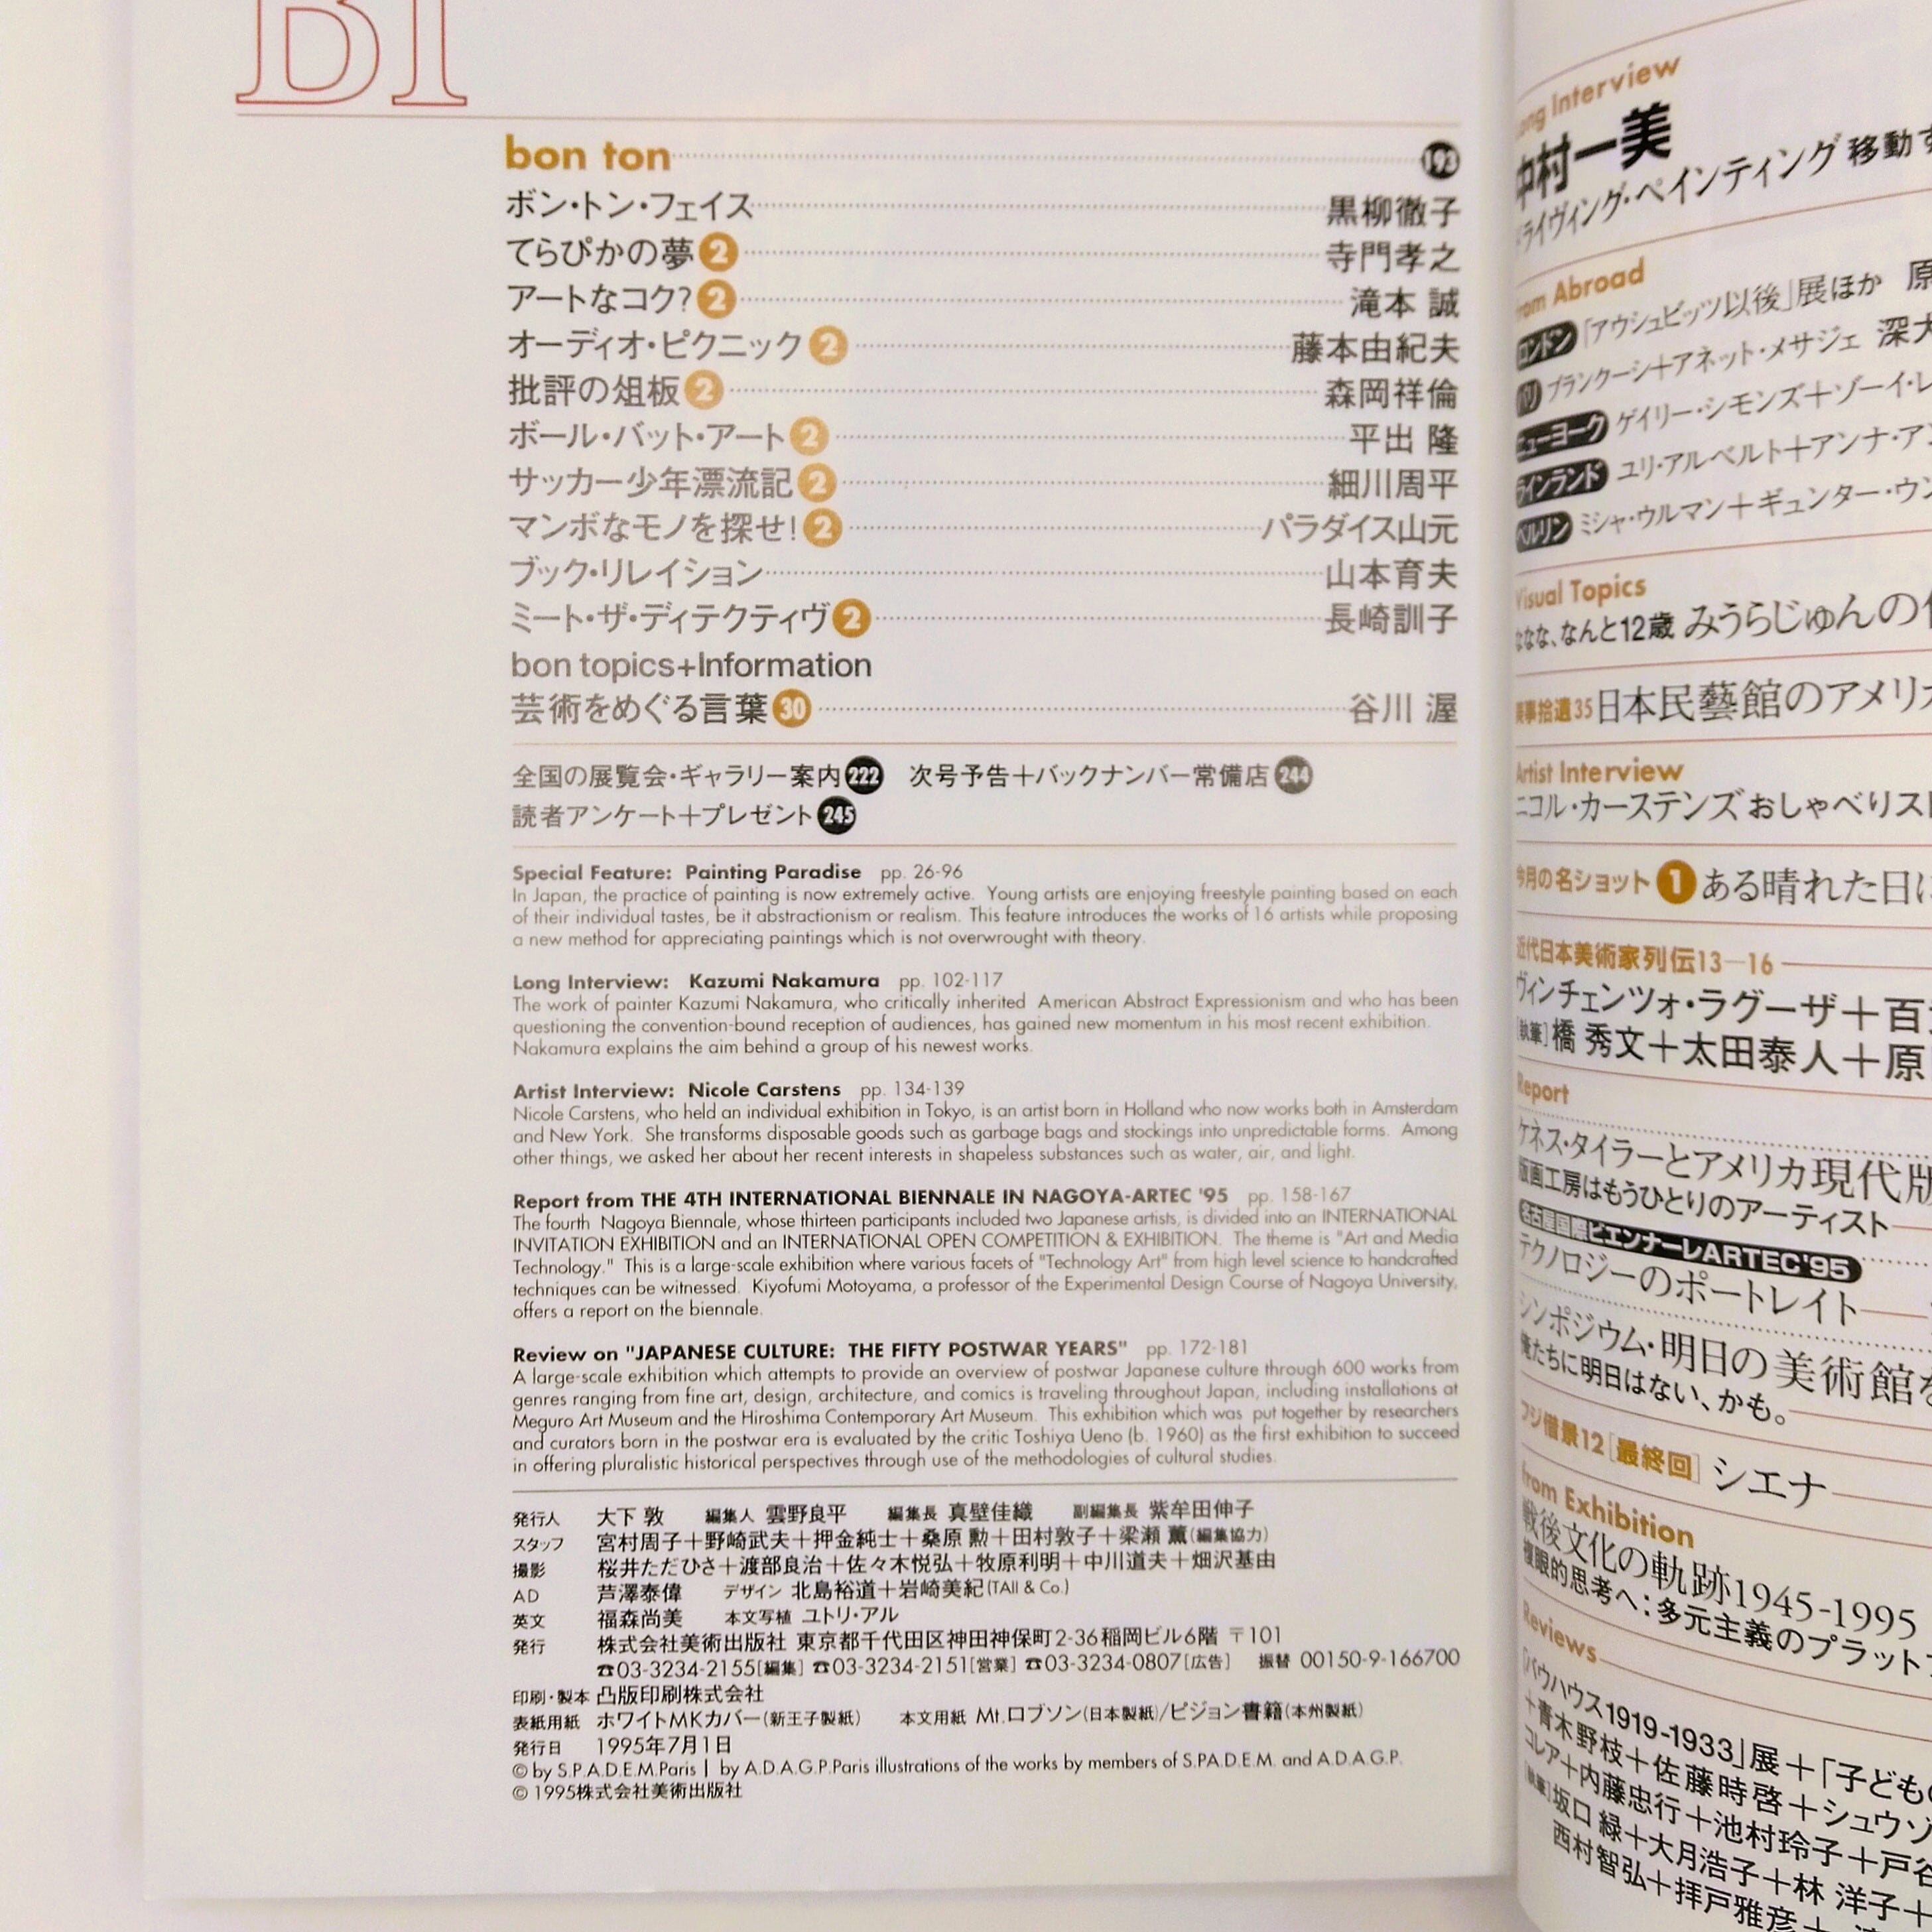 BT
bon ton 193
ボン・トン・フェイス 黒柳徹子
てらぴかの夢 2 寺門孝之
アートなコク? 2 滝本 誠
オーディオ・ピクニック 2 藤本由紀夫
批評の俎板 2 森岡祥倫
ボール・バット・アート 2 平出 隆
サッカー少年漂流記 2 細川周平
マンボなモノを探せ! 2 パラダイス山元
ブック・リレイション 山本育夫
ミート・ザ・ディテクティヴ 2 長崎訓子
bon topics+Information
芸術をめぐる言葉 30 谷川 渥
全国の展覧会・ギャラリー案内 222 次号予告+バックナンバー常備店 244
読者アンケート+プレゼント 245
Special Feature: Painting Paradise pp. 26-96
In Japan, the practice of painting is now extremely active. Young artists are enjoying freestyle painting based on each
of their individual tastes, be it abstractionism or realism. This feature introduces the works of 16 artists while proposing
a new method for appreciating paintings which is not overwrought with theory.
Long Interview: Kazumi Nakamura pp. 102-117
The work of painter Kazumi Nakamura, who critically inherited American Abstract Expressionism and who has been
questioning the convention-bound reception of audiences, has gained new momentum in his most recent exhibition.
Nakamura explains the aim behind a group of his newest works.
Artist Interview: Nicole Carstens pp. 134-139
Nicole Carstens, who held an individual exhibition in Tokyo, is an artist born in Holland who now works both in Amsterdam
and New York. She transforms disposable goods such as garbage bags and stockings into unpredictable forms. Among
other things, we asked her about her recent interests in shapeless substances such as water, air, and light.
Report from THE 4TH INTERNATIONAL BIENNALE IN NAGOYA-ARTEC '95 pp. 158-167
The fourth Nagoya Biennale, whose thirteen participants included two Japanese artists, is divided into an INTERNATIONAL
INVITATION EXHIBITION and an INTERNATIONAL OPEN COMPETITION & EXHIBITION. The theme is "Art and Media
Technology." This is a large-scale exhibition where various facets of "Technology Art" from high level science to handcrafted
techniques can be witnessed. Kiyofumi Motoyama, a professor of the Experimental Design Course of Nagoya University,
offers a report on the biennale.
Review on "JAPANESE CULTURE: THE FIFTY POSTWAR YEARS" pp. 172-181
A large-scale exhibition which attempts to provide an overview of postwar Japanese culture through 600 works from
genres ranging from fine art, design, architecture, and comics is traveling throughout Japan, including installations at
Meguro Art Museum and the Hiroshima Contemporary Art Museum. This exhibition which was put together by researchers
and curators born in the postwar era is evaluated by the critic Toshiya Ueno (b. 1960) as the first exhibition to succeed
in offering pluralistic historical perspectives through use of the methodologies of cultural studies.
発行人 大下 敦 編集人 雲野良平 編集長 真壁佳織 副編集長 紫牟田伸子
スタッフ 宮村周子+野崎武夫+押金純士+桑原 勲+田村敦子+梁瀬 薫(編集協力)
撮影 桜井ただひさ+渡部良治+佐々木悦弘+牧原利明+中川道夫+畑沢基由
AD 芦澤泰偉 デザイン 北島裕道+岩崎美紀(TAll & Co.)
英文 福森尚美 本文写植 ユトリ・アル
発行 株式会社美術出版社 東京都千代田区神田神保町2-36稲岡ビル6階 〒101
☎03-3234-2155[編集] ☎03-3234-2151[営業] ☎03-3234-0807[広告] 振替 00150-9-166700
印刷・製本 凸版印刷株式会社
表紙用紙 ホワイトMKカバー(新王子製紙) 本文用紙 Mt.ロブソン(日本製紙)/ピジョン書籍(本州製紙)
発行日 1995年7月1日
© by S.P.A.D.E.M.Paris | by A.D.A.G.P.Paris illustrations of the works by members of S.P.A.D.E.M. and A.D.A.G.P.
© 1995株式会社美術出版社
Interview
中村一美
ドライヴィング・ペインティング 移動す
from Abroad
ロンドン 「アウシュビッツ以後」展ほか 原
パリ ブランクーシ+アネット・メサジェ 深大
ニューヨーク ゲイリー・シモンズ+ゾーイ・レ
ラインランド ユリ・アルベルト+アンナ・ア
ベルリン ミシャ・ウルマン+ギュンター・ウ
Visual Topics
ななな、なんと12歳 みうらじゅんの
美事拾遺35 日本民藝館のアメリカ
Artist Interview
ニコル・カーステンズ おしゃべりス
今月の名ショット 1 ある晴れた日に
近代日本美術家列伝13—16
ヴィンチェンツォ・ラグーザ+百
[執筆]橋 秀文+太田泰人+原
Report
ケネス・タイラーとアメリカ現代版
版画工房はもうひとりのアーティスト
名古屋国際ビエンナーレARTEC'95
テクノロジーのポートレイト
シンポジウム・明日の美術館を
俺たちに明日はない、かも。
フジ借景12[最終回] シエナ
from Exhibition
戦後文化の軌跡1945-1995
複眼的思考へ:多元主義のプラット
Reviews
「バウハウス1919-1933」展+「子どもの
+青木野枝+佐藤時啓+シュウゾ
コレア+内藤忠行+池村玲子+戸谷
[執筆]坂口 緑+大月浩子+林 洋子+
西村智弘+拝戸雅彦+